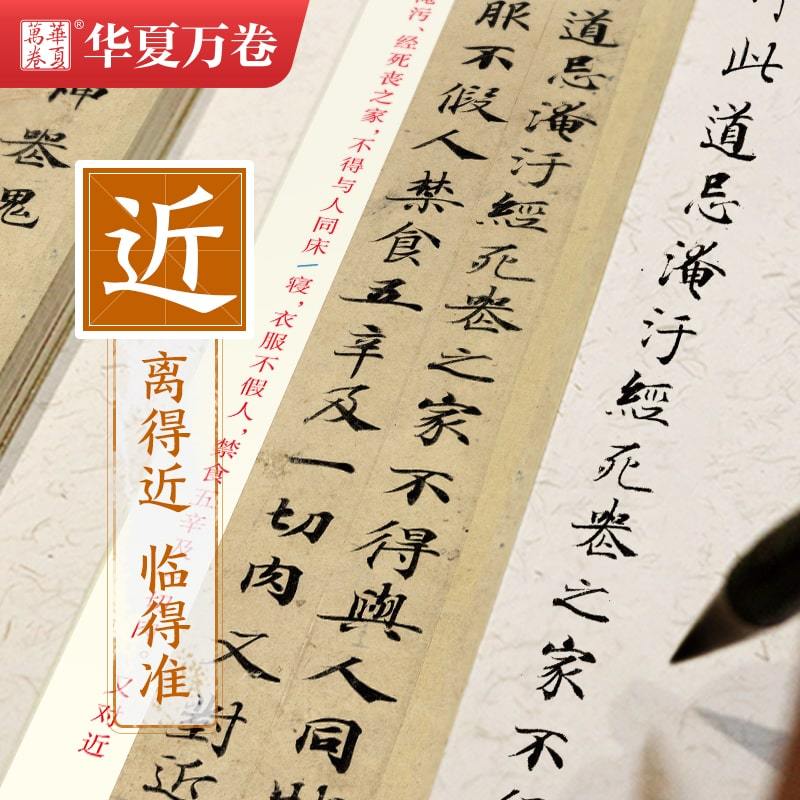 華夏
萬卷
®
华夏万卷
近
离得近 临得准
此道忌淹汙經死喪之家不
道忌淹汙經死喪之家不得與人同
服不假人禁食五辛及一切肉又對近
污、经死丧之家，不得与人同床
寝，衣服不假人，禁食五辛及
又对近
鬼